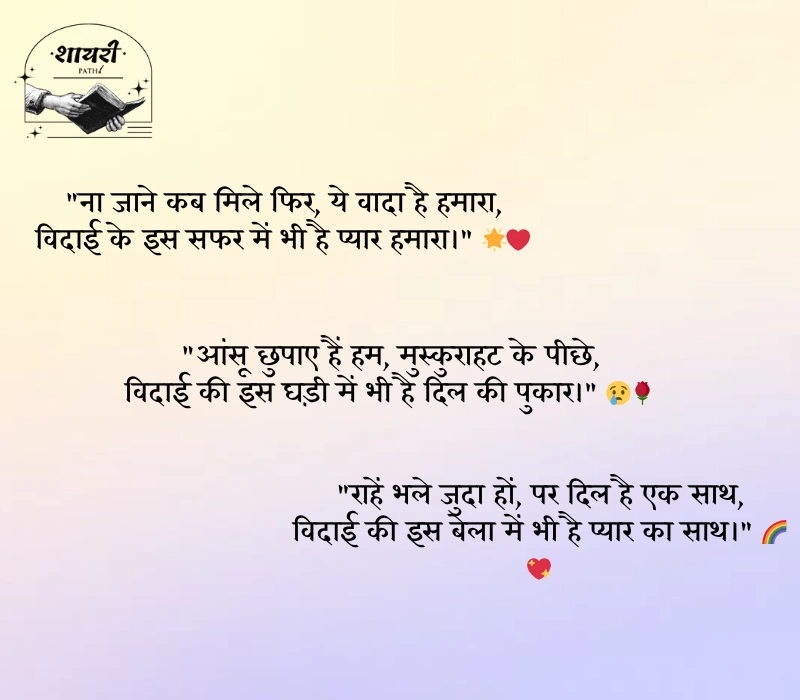 शायरी
PATH
"ना जाने कब मिले फिर, ये वादा है हमारा,
विदाई के इस सफर में भी है प्यार हमारा।" 🌟❤️
"आंसू छुपाए हैं हम, मुस्कुराहट के पीछे,
विदाई की इस घड़ी में भी है दिल की पुकार।" 😢🌹
"राहें भले जुदा हों, पर दिल है एक साथ,
विदाई की इस बेला में भी है प्यार का साथ।" 🌈
💖